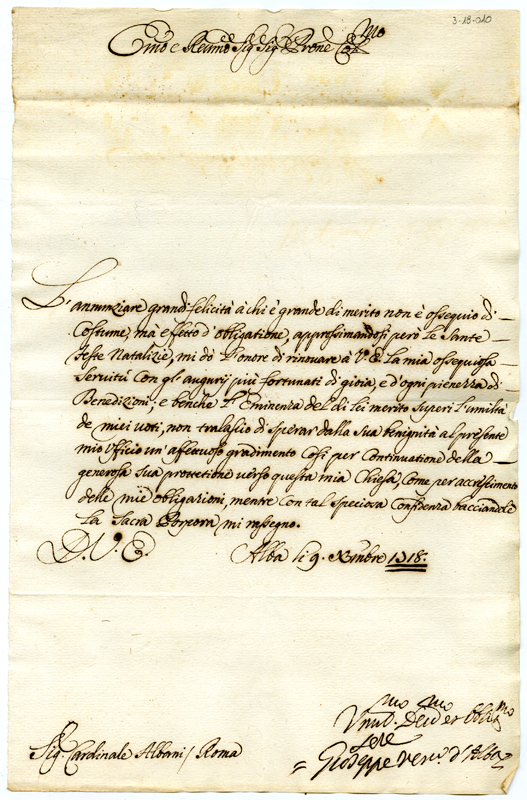 3-18-010
Emo e Revmo Sig Sig Prone Colmo
L'annunziare grandi felicità à chi è grande di merito non è ossequio di
Costume, mà effetto d'obligatione, approssimandosi però le Sante
feste Natalizie, mi dò l'onore di rinovare à V.E. la mia ossequiosa
Servitù con gl'augurij più fortunati di gioia, e d'ogni pienezza di
Benedizioni; e benche l'Eminenza del di lei merito superi l'umiltà
de miei voti, non tralascio di sperar dalla sua benignità al presente
mio Ufficio un'affettuoso gradimento così per Continuatione della
generosa sua protettione verso questa mia Chiesa, Come per accrescimento
delle mie obligazioni, mentre con tal speciosa Confidenza bacciandole
La Sacra Porpora mi rassegno.
D. V. E. Alba li 9. Xmbre 1718.
Umilmo Devmo et Obligmo
Sig. Cardinale Albani / Roma
Giuseppe Vesco d'Alba